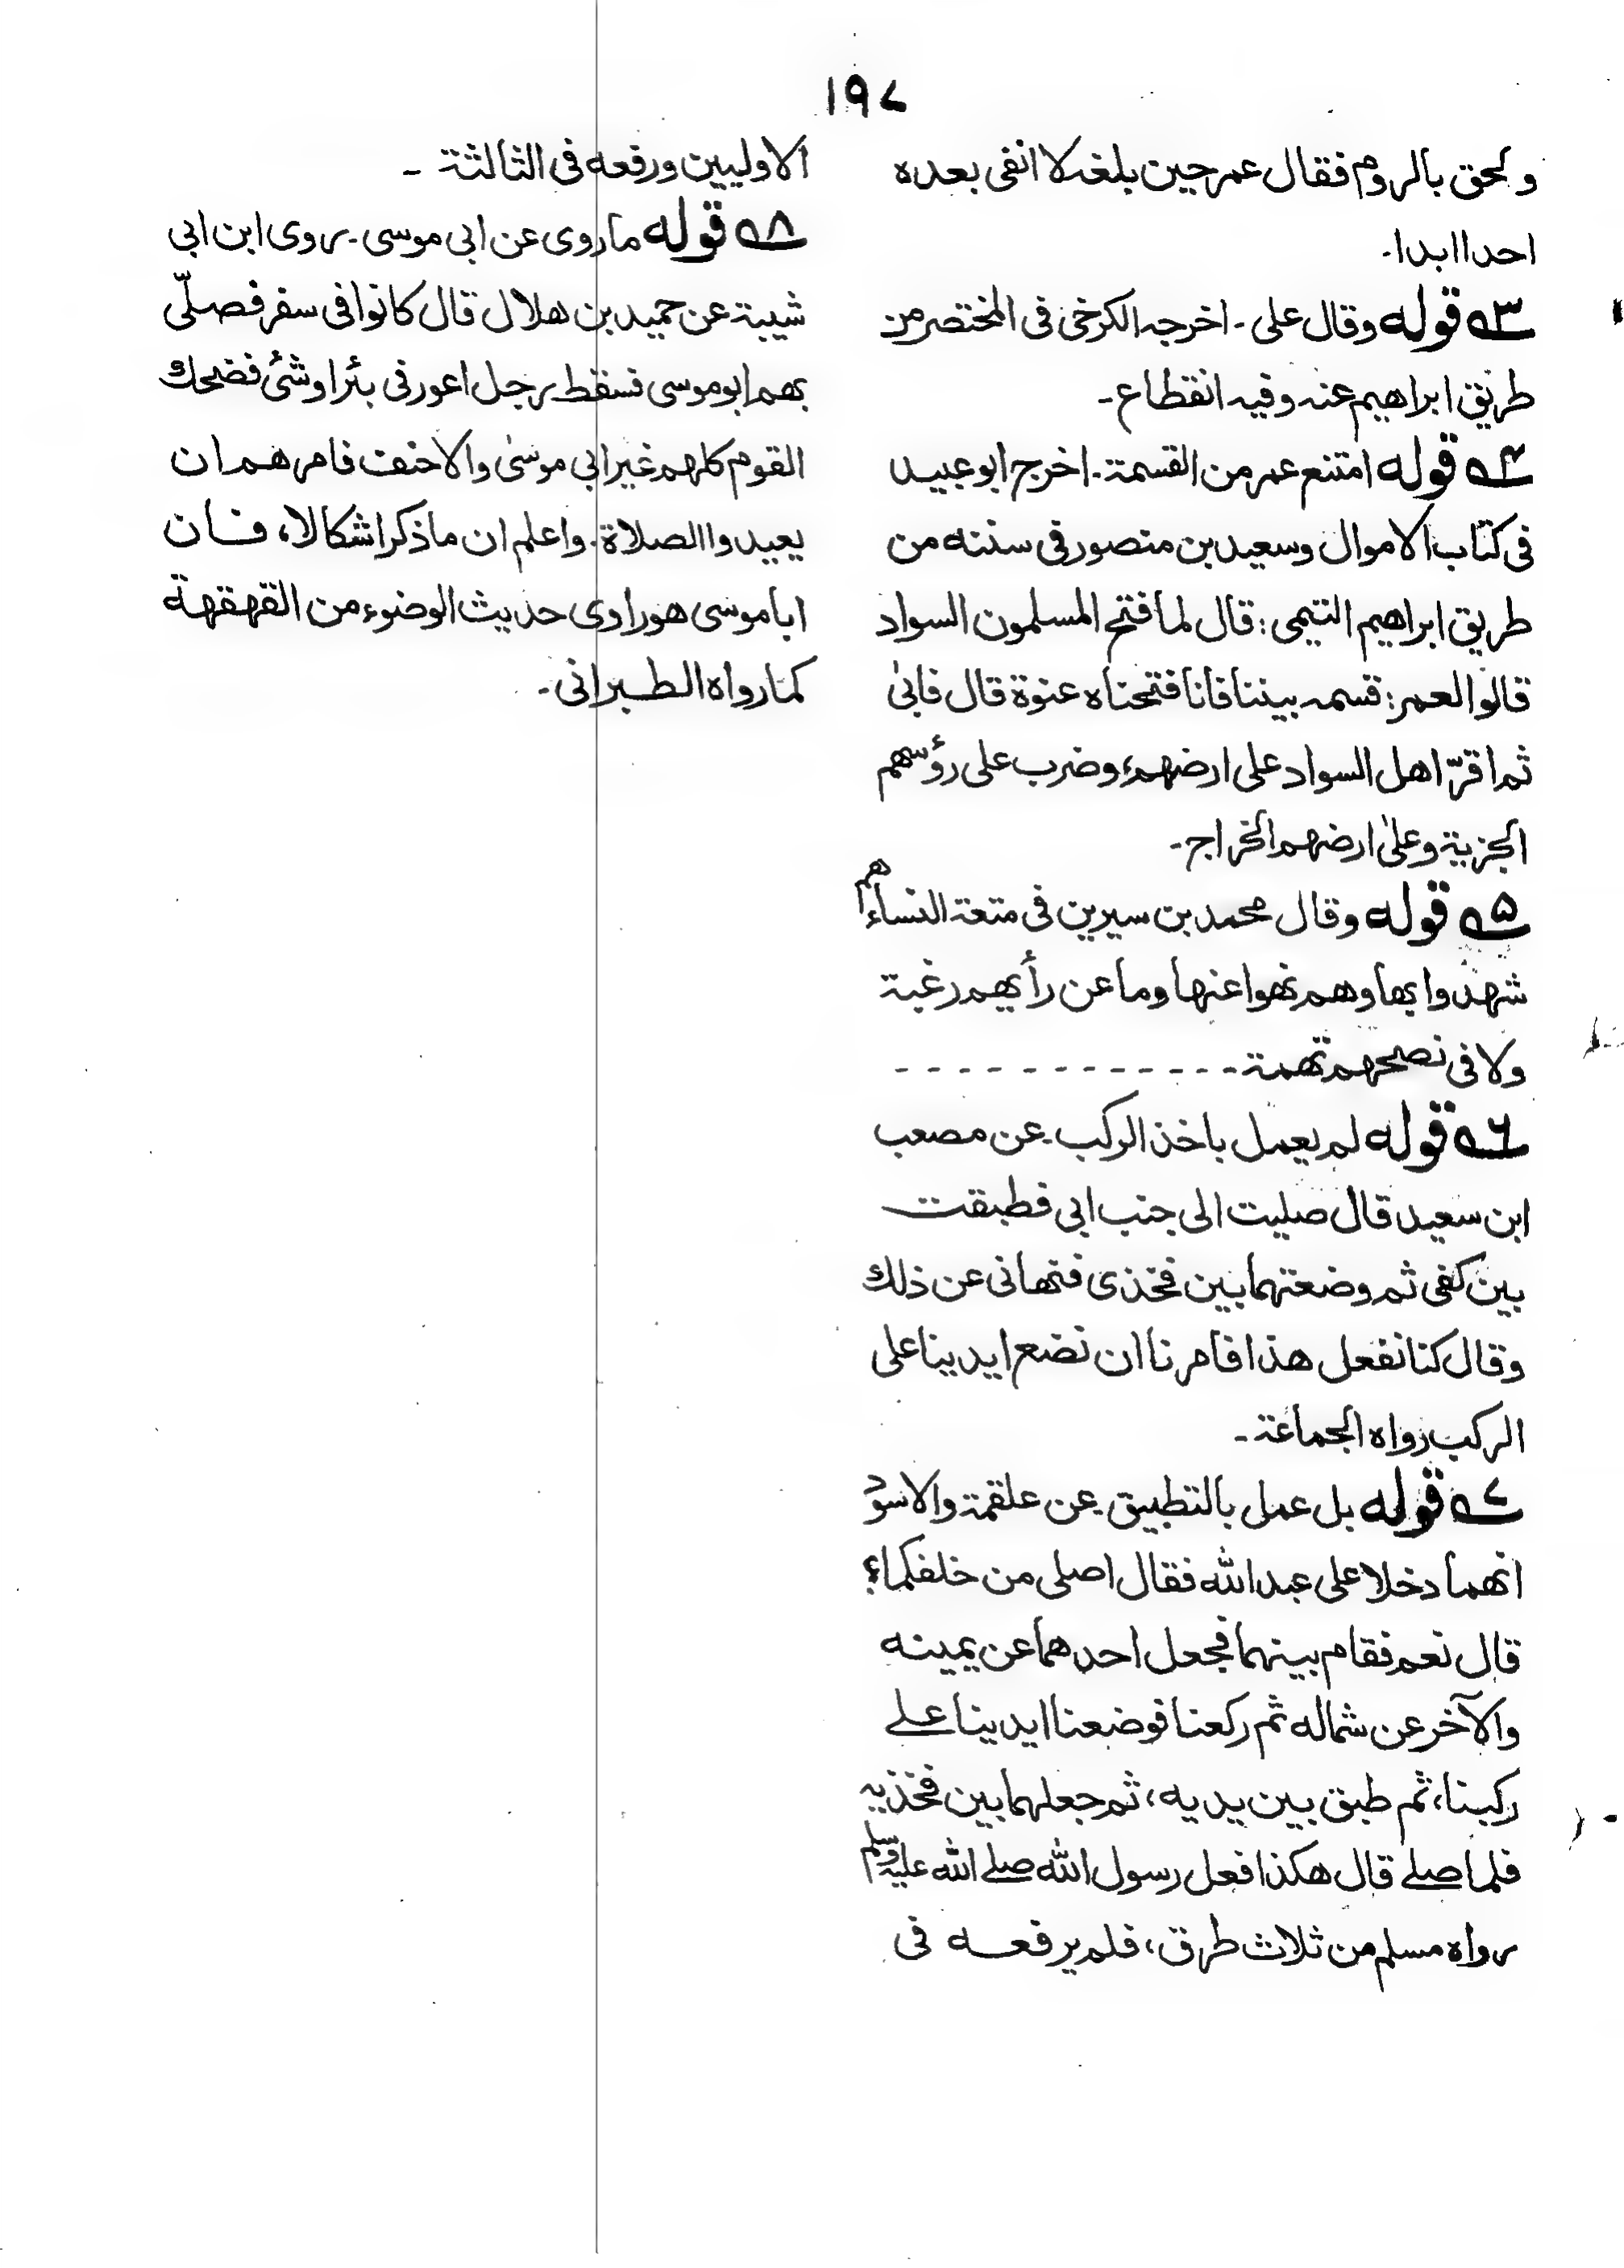 ١٩٧
ولحق بالروم فقال عمر حين بلغه لا انفى بعده
احدا ابدا۔
٣ه قوله وقال على۔ اخرجه الكرخى فى المختصر من
طريق ابراهيم عنه وفيه انقطاع۔
٤ه قوله امتنع عمر من القسمة۔ اخرج ابو عبيد
فى كتاب الاموال وسعيد بن منصور فى سننه من
طريق ابراهيم التيمى: قال لما فتح المسلمون السواد
قالوا لعمر: قسمه بيننا فانا فتحناه عنوة قال فابىٰ
ثم اقرّ اهل السواد على ارضهم، وضرب على رؤسهم
الجزية وعلىٰ ارضهم الخراج۔
٥ه قوله وقال محمد بن سيرين فى متعة النساء هم
شهدوا بها وهم نهوا عنها وما عن رأيهم رغبة
ولا فى نصحهم تهمة - - - - - - - - - - - -
٦ه قوله لم يعمل باخذ الركب۔ عن مصعب
ابن سعيد قال صليت الى جنب ابى فطبقت
بين كفى ثم وضعتهما بين فخذى فنهانى عن ذلك
وقال كنا نفعل هذا فامرنا ان نضع ايدينا على
الركب رواه الجماعة۔
٧ه قوله بل عمل بالتطبيق۔ عن علقمة والاسود
انهما دخلا على عبدالله فقال اصلى من خلفكما؟
قال نعم فقام بينهما فجعل احدهما عن يمينه
والآخر عن شماله ثم ركعنا فوضعنا ايدينا علے
ركبنا، ثم طبق بين يديه، ثم جعلهما بين فخذيه
فلما صلے قال هكذا فعل رسول الله صلے الله عليه وسلم
رواه مسلم من ثلاث طرق، فلم يرفعه فى
الاوليين ورفعه فى الثالثة ۔
٨ه قوله ما روى عن ابى موسى۔ روى ابن ابى
شيبة عن حميد بن هلال قال كانوا فى سفر فصلّى
بهم ابو موسى فسقط رجل اعور فى بئر او شئ فضحك
القوم كلهم غير ابى موسىٰ والاحنف فامرهم ان
يعيدوا الصلاة۔ واعلم ان ما ذكر اشكالا، فان
ابا موسى هو راوى حديث الوضوء من القهقهة
كما رواه الطبرانى۔